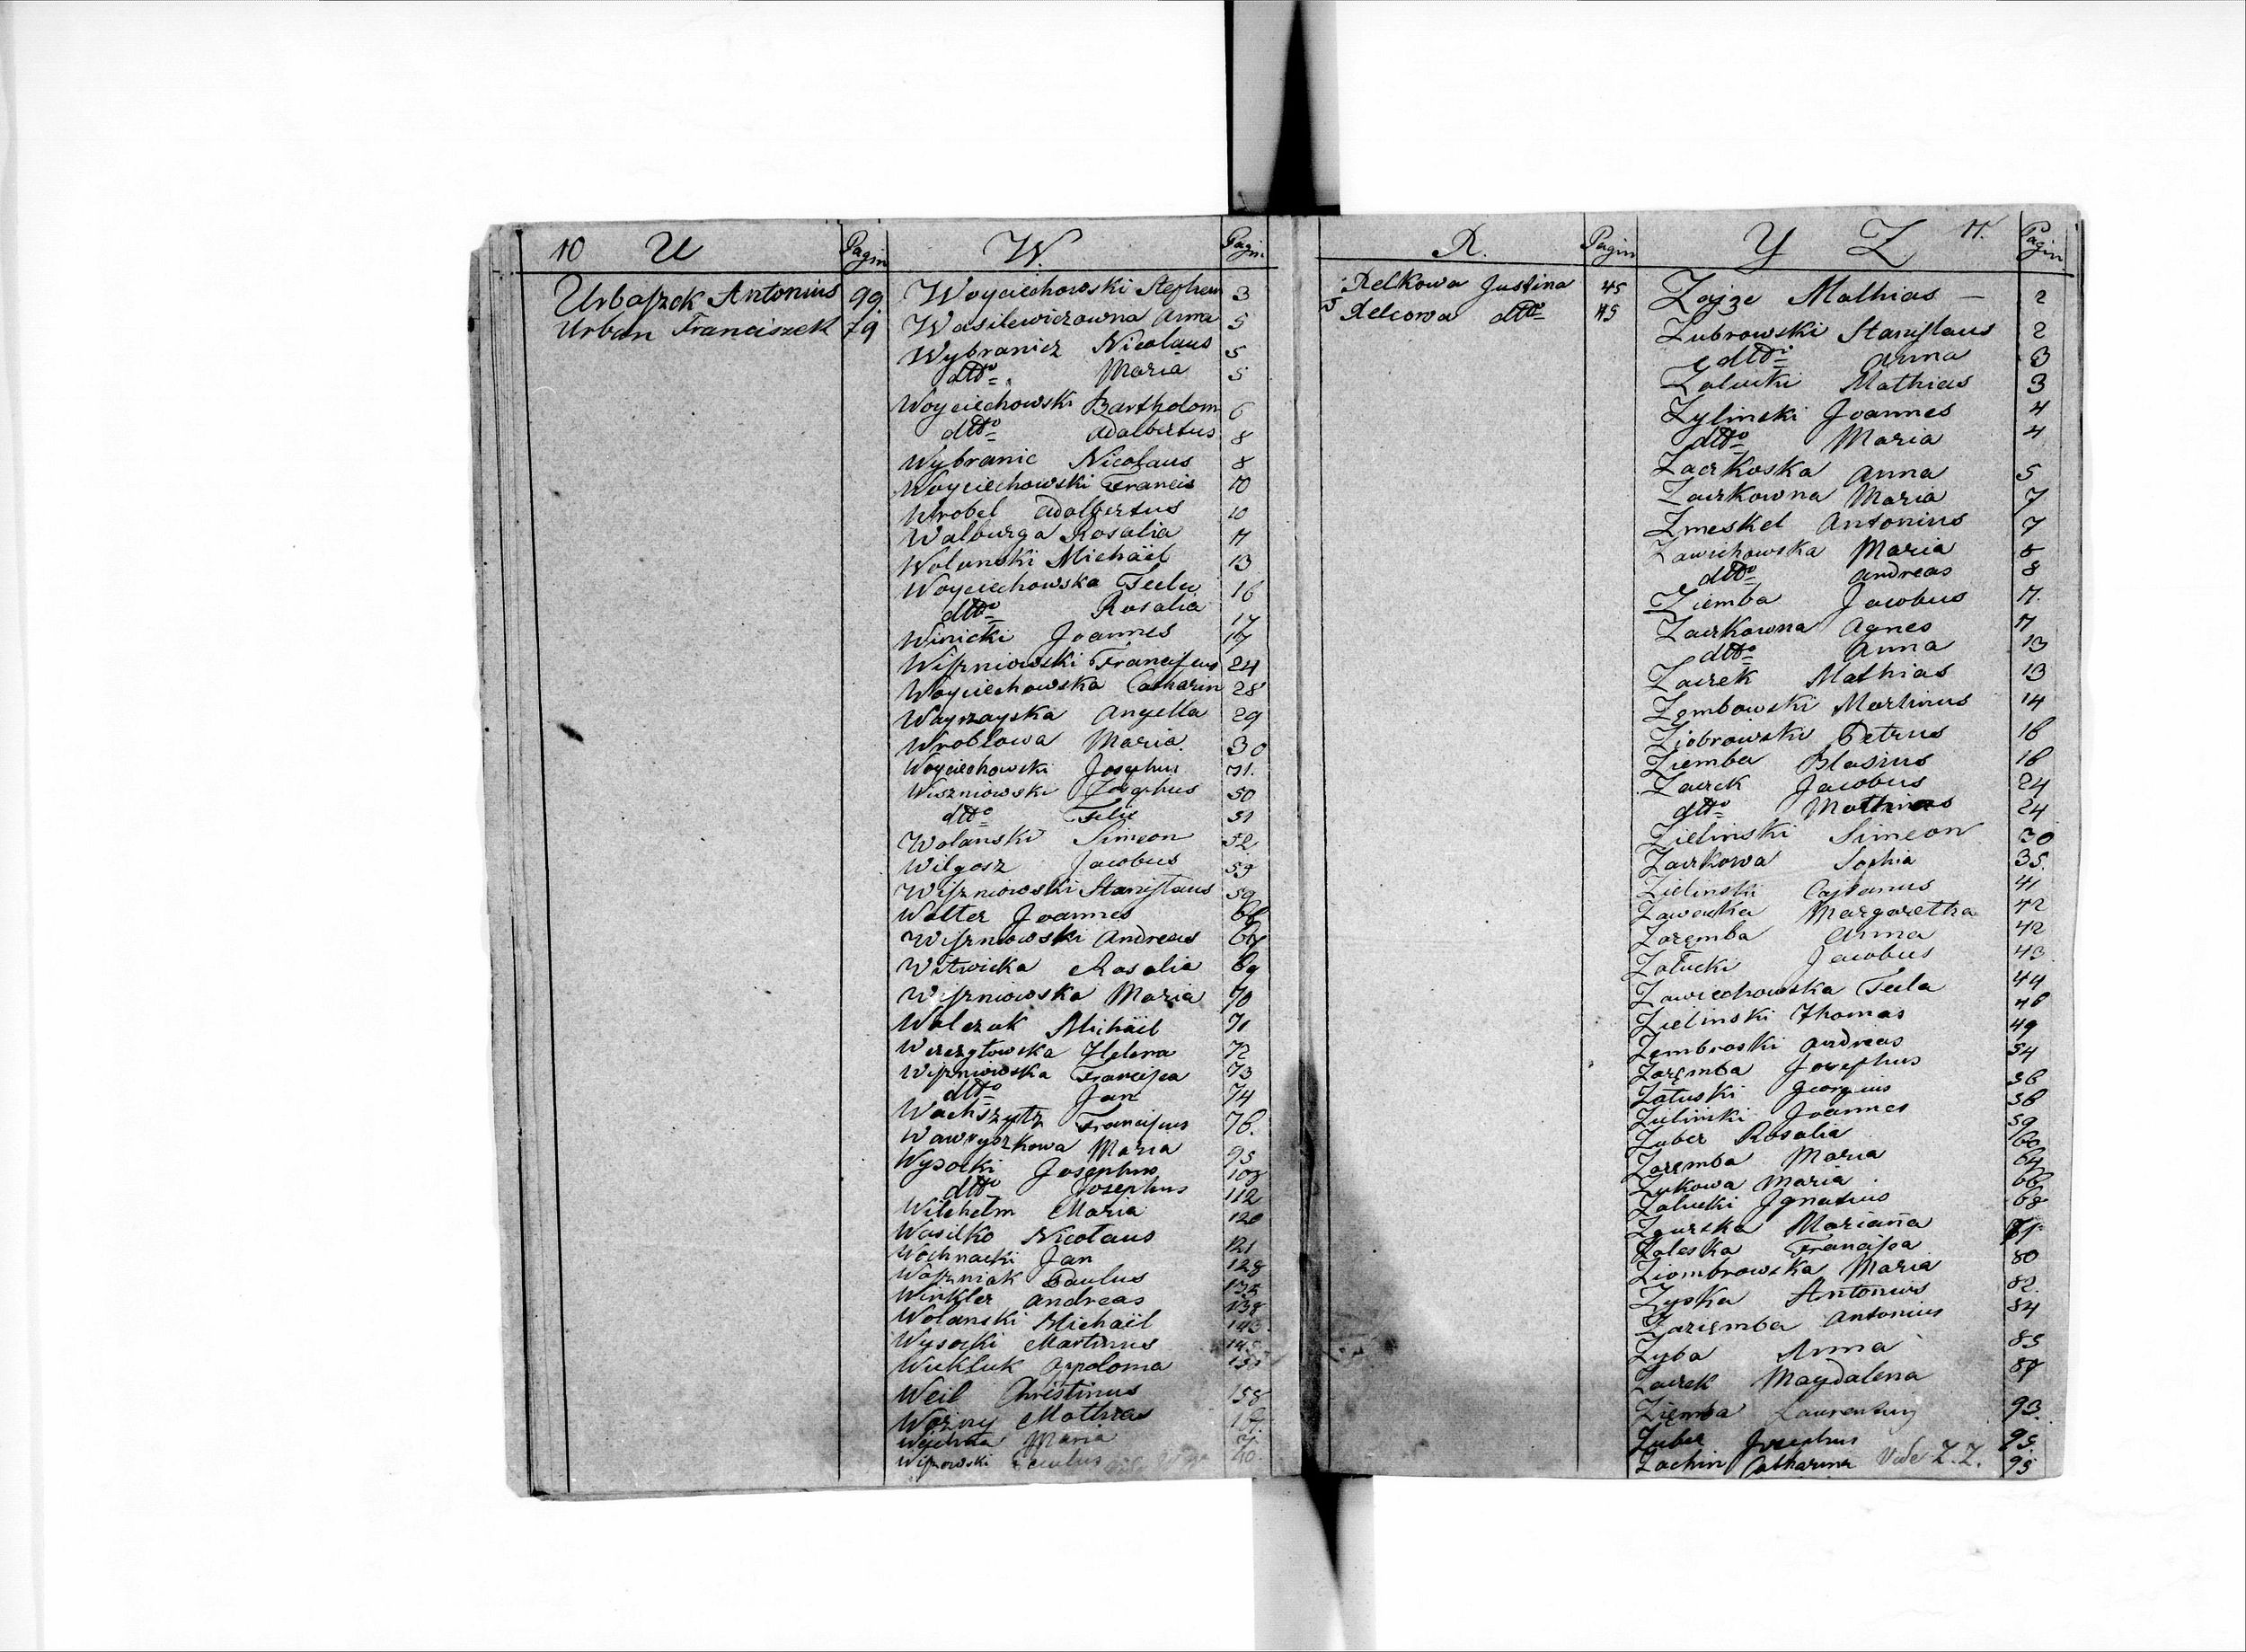 10 U Pagin
Urbaſzek Antonius 99.
Urban Franciszek 79
W. Pagin
Woyciechowski Stephan 3
Wasilewiczowna Anna 5
Wybranicz Nicolaus 5
dtto Maria 5
Woyciechowski Bartholom 6
dtto Adalbertus 8
Wybranic Nicolaus 8
Woyciechowski Francis 10
Wrobel Adalbertus 10
Walburga Rosalia 11
Wolanski Michaël 13
Woyciechowska Tecla 16
dtto Rosalia 17
Winicki Joannes 17
Wiſzniowski Franciſcus 24
Woyciechowska Catharin 28
Angella 29
Wroblowa Maria 30
Woyciechowski Josephus 31.
Wiszniowski Josephus 50
dtto Felix 51
Wolanski Simeon 52
Wilgosz Jacobus
Wiſzniowski Staniſlaus 59
Walter Joannes 66
Wiſzniowski Andreas 67
Witwicka Rosalia 69
Wiſzniowska Maria 70
Walczak Michaël 71
Helena 72
Wiſzniowska Franciſca 73
dtto Jan 74
Franciſcus 76.
Wawryszkowa Maria 95
Wysocki Josephus 108
dtto Josephus 112
Wilchelm Maria 120
Wasilko Nicolaus 121
Wochnacki Jan 128
Woźniak Paulus
Winkler Andreas 138
Wolanski Michaël 143
Wysocki Martinus 145
Appolonia
Weil Christinus 158
Woźny Mathias
Maria
Wiſzniowski Paulus
R. Pagin
Relkowa Justina 45
Relcowa dtto 45
Y Z 11. Pagin
Zajze Mathias — 2
Zubrowski Staniſlaus 2
dtto Anna 3
Zalucki Mathias 3
Zylinski Joannes 4
dtto Maria 4
Zaczkoska Anna 5
Zaczkowna Maria 7
Zmeskel Antonius 7
Zawichowska Maria 8
dtto Andreas 8
Ziemba Jacobus 11.
Zaczkowna Agnes 11
dtto Anna 13
Zaczek Mathias 13
Zembowski Martinus 14
Ziobrowski Petrus 16
Ziemba Blasius 16
Zaczek Jacobus 24
dtto Mathias 24
Zielinski Simeon 30
Zaczkowa Sophia 35.
Zielinski Cajetanus 41
Margaretha 42
Zaręmba Anna 42
Załucki Jacobus 43
Zawiechowska Tecla 44
Zielinski Thomas 46
Zembroski Andreas 49
Zaręmba Josephus 54
Załuski Georgius 56
Zielinski Joannes 56
Zuber Rosalia 59
Zaręmba Maria
Zukowa Maria 64
Zalucki Ignatius 66
Zgurska Marianna 68
Zaleska Franciſca
Ziombrowska Maria 80
Zyska Antonius 82.
Zariemba Antonius 84
Zyba Anna 85
Zaczek Magdalena 87
Ziemba 93.
Zuber Josephus 95.
Zachin Catharina Vide Z.Z. 95